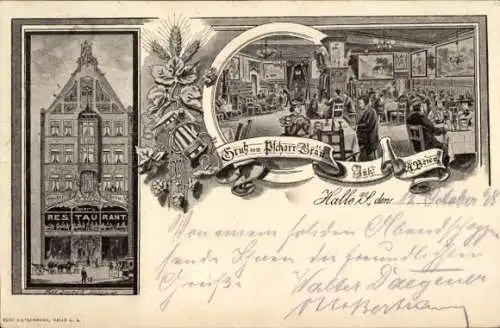 RESTAURANT
Gruß vom Pschorr-Bräu
Inh: A. Breu
Halle a/S., den 12. October 98
Von einem soliden Abendschoppen
sende Ihnen die freundlichsten
Grüße
Walter Daegener